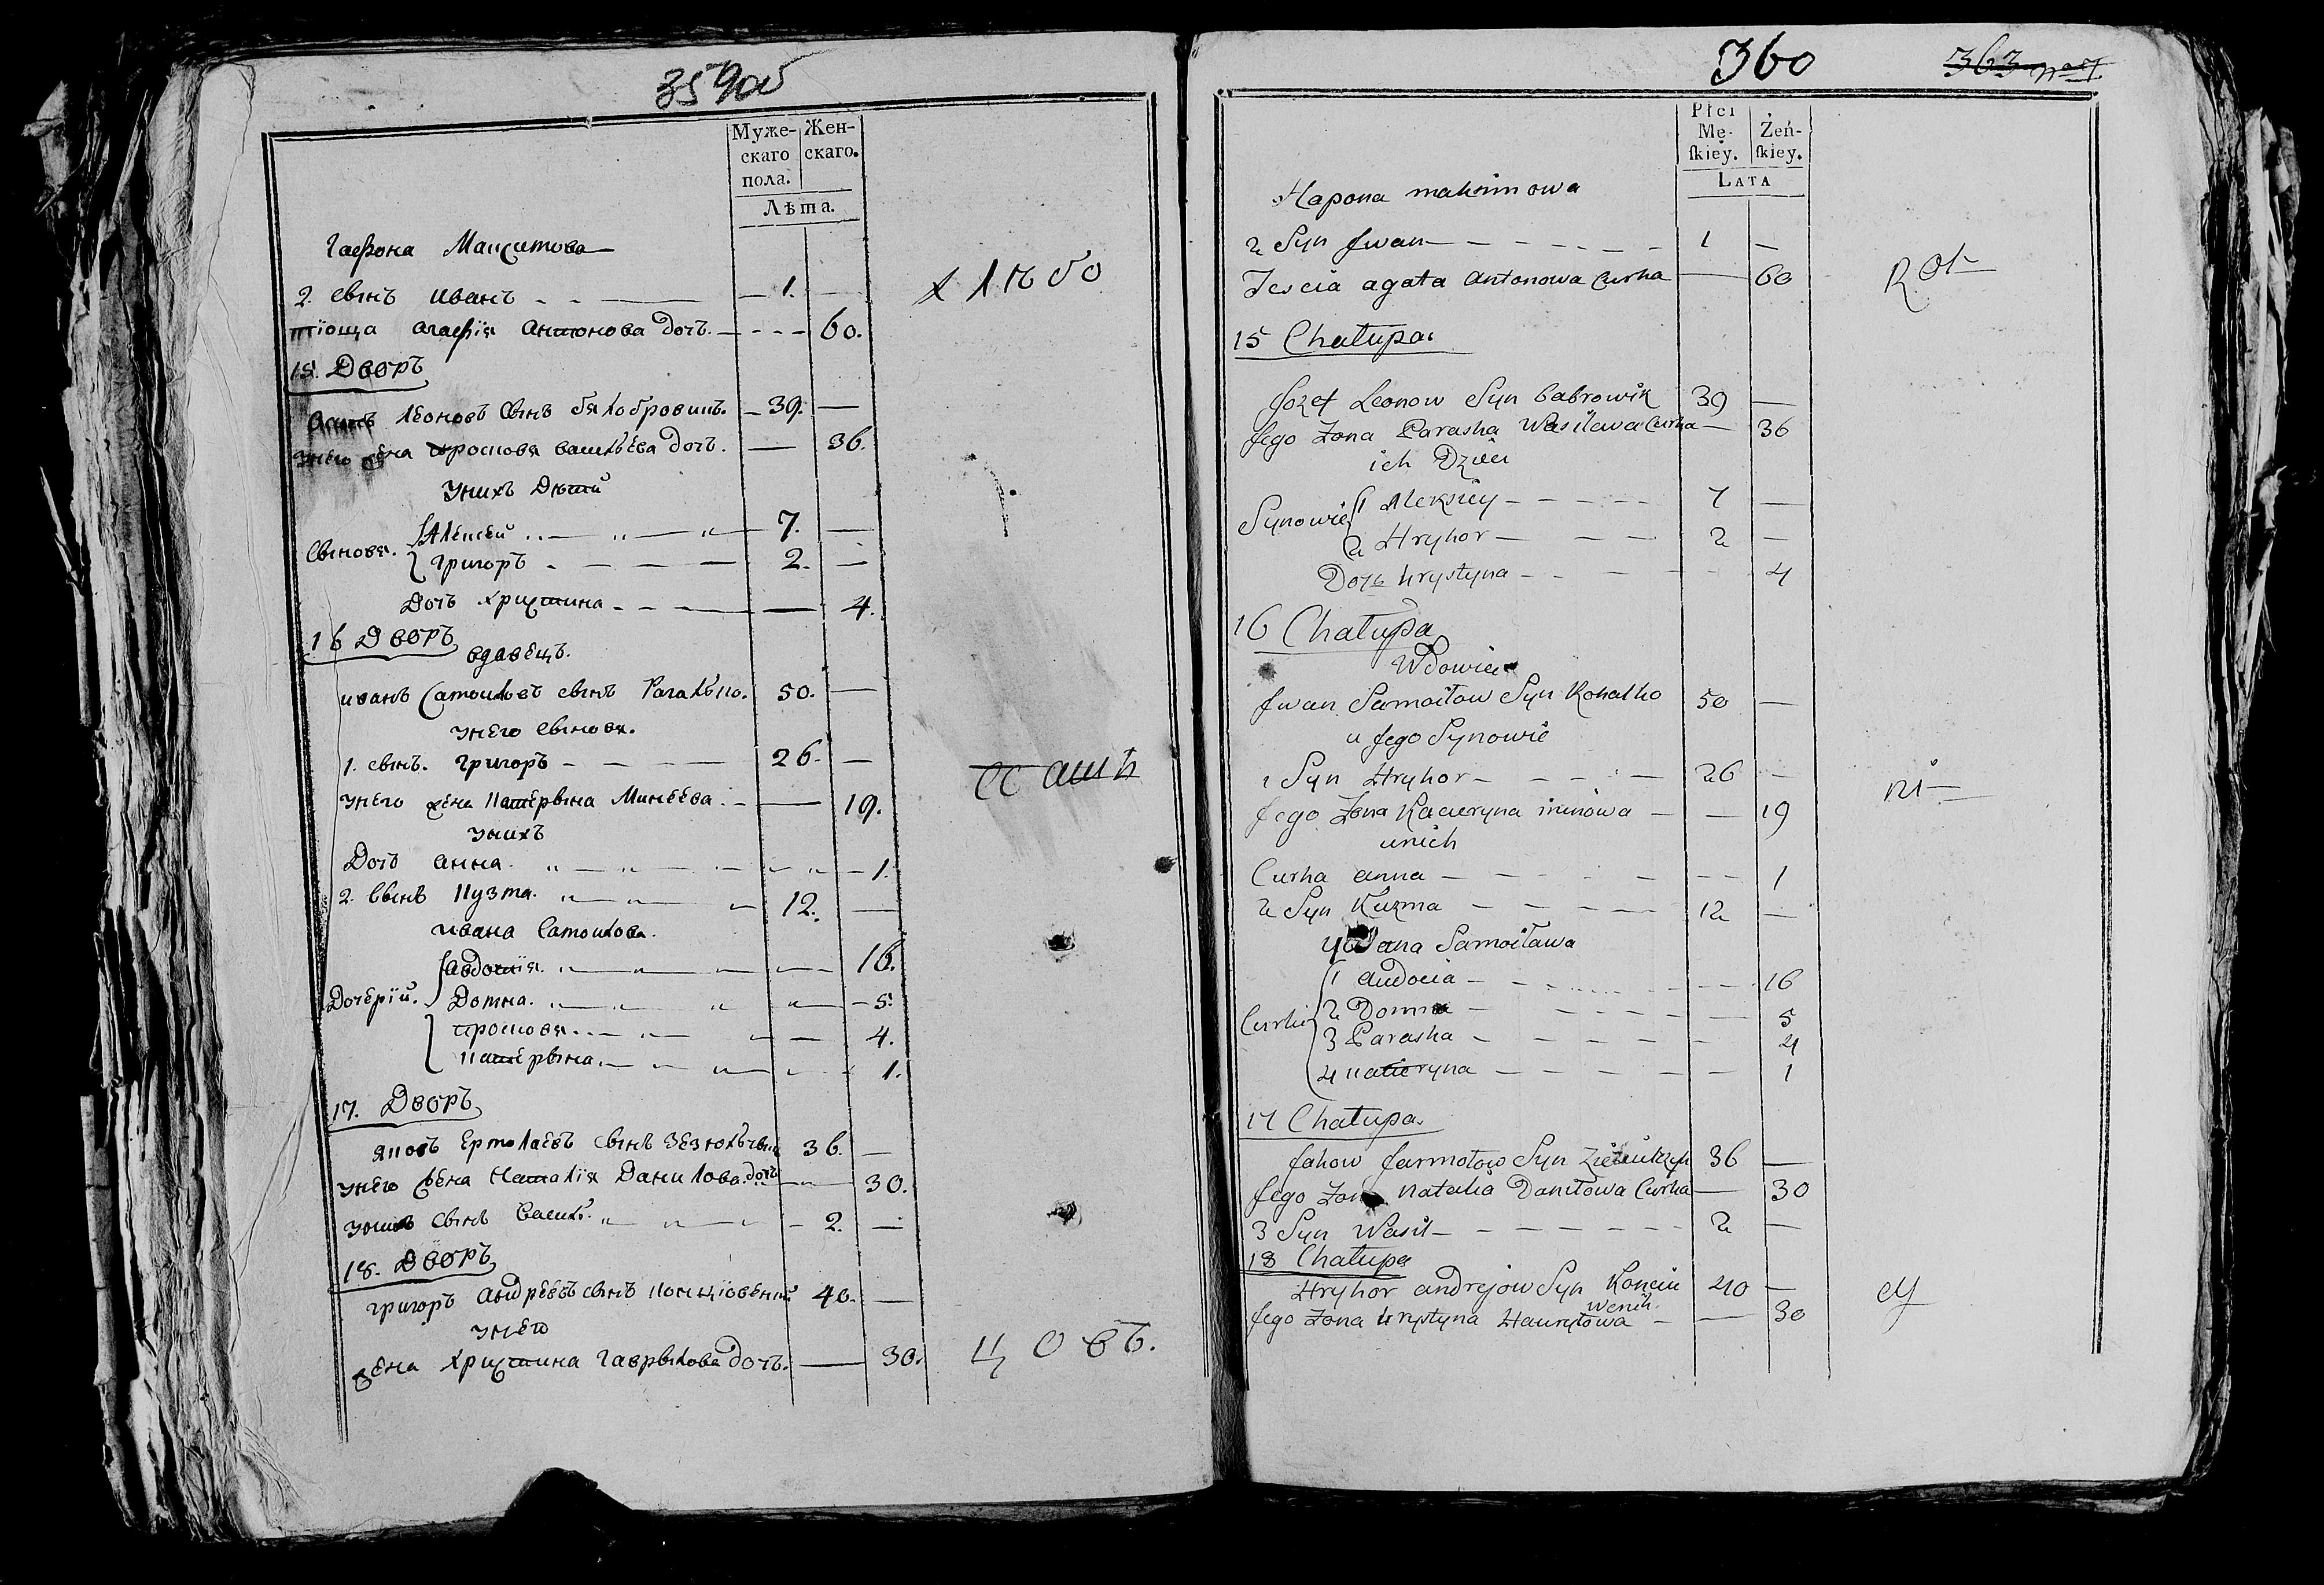 359об
Муже- Жен-
скаго скаго.
пола.
Лѣта.
Гапона Максимова
2. сынъ иванъ - - 1. —
тїоща агафїя антонова дочъ. — 60.
15. Дворъ
леоновъ сынъ бялобровикъ. 39. —
унего жена просковя васильева дочъ. — 36.
унихъ Дети
Сыновя. Алексей 7. —
Григоръ 2. —
Дочъ христина — 4.
16 Дворъ
вдавецъ.
иванъ Самоиловъ сынъ 50. —
унего сыновя.
1. сынъ. Григоръ 26. —
унего жена катерына Минеева — 19.
унихъ
Дочъ анна. 1.
2. Сынъ кузма. 12. —
ивана Самоилова.
Дочерїи. авдотїя. 16.
Домна. 5.
просковя. 4.
катерына 1.
17. Дворъ
яковъ Ермолаевъ сынъ 36. —
унего жена Наталїя Данилова дочъ — 30.
унихъ сынъ Василь 2. —
18. Дворъ
григоръ андреевъ сынъ 40. —
унего
жена христина Гаврылова дочъ. — 30.
360 363
Płci
Mę- Żeń-
ſkiéy. ſkiey.
LATA
Hapona maksimowa
2 Syn Jwan 1 —
Tescia agata antonowa Curka — 60
15 Chałupa.
Jozef Leonow Syn babrowik 39 —
Jego Zona Paraska Wasilowa Curka — 36
ich Dzieci
Synowie 1 Aleksiey 7 —
2 Hryhor 2 —
Dочь krystyna 4
16 Chałupa
Wdowiec
Jwan Samoiłow Syn Kohalko 50 —
u Jego Synowie
1 Syn Hryhor 26 —
Jego Zona Kacieryna — 19
unich
Curka anna 1
2 Syn Kuzma 12 —
Samoiława
Curki 1 audocia 16
2 Domna 5
3 Paraska 4
4 katieryna 1
17 Chałupa.
Jakow Jarmołow Syn 36 —
Jego Zona natalia Daniłowa Curka — 30
3 Syn Wasil 2 —
18 Chałupa
Hryhor andrejow Syn Konciu 40 —
wenik
Jego Zona krystyna Hauryłowa — 30